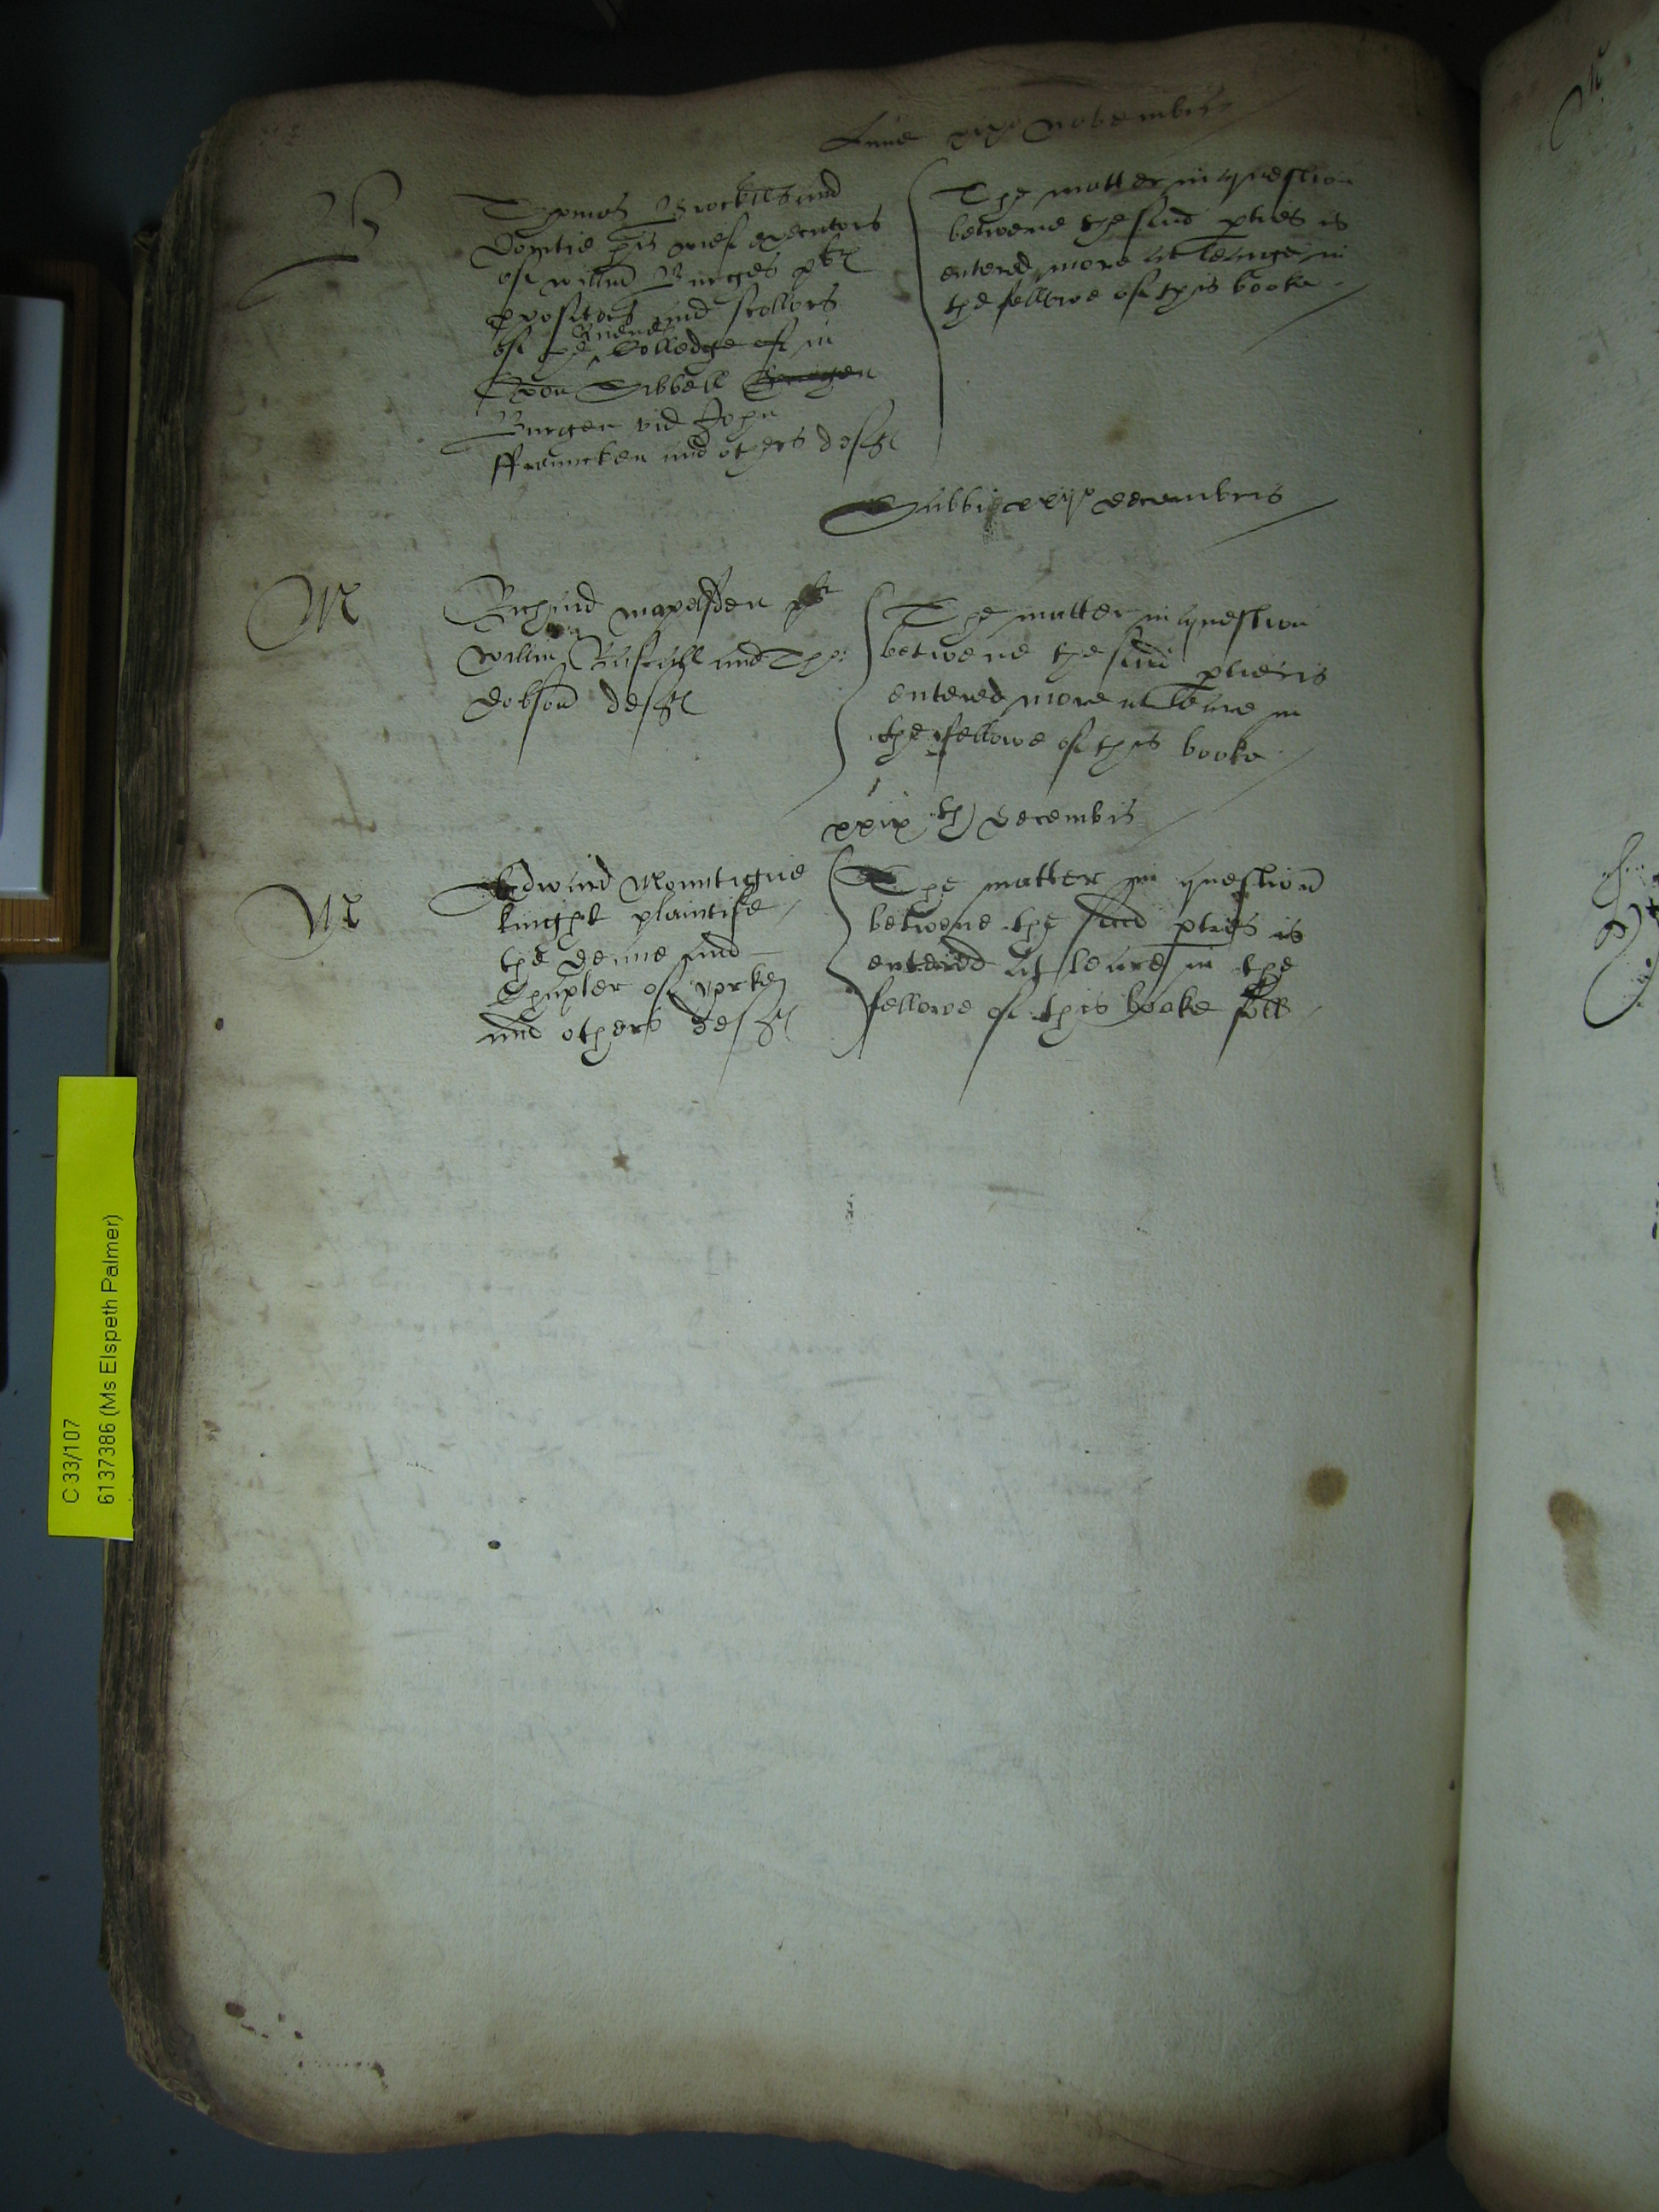 Lune xixo Novembris
B
Thomas Brockells and
his wief executors
of Willm Burges pltes
prositors and scollors
of the Queenes Colledge of in
Oxon Sibbell Burgen
Burgen vid John
ffrenncken and others deftes
The matter in question
betwene the said pties is
entered more at leinge in
the fellowe of this booke
Sabbti xxijo decembris
M
Richard mapelsden plt
Willm and Tho:
dobson deftes
The matter in question
betwene the said pties is
entered more at leare in
the fellowe of this booke
xxix th decembris
M
Edward Mountague
knight plaintife
the deane and
Chapter of yorke
and others deftes
The matter in question
betwene the said pties is
entered at leare in the
fellowe of this booke foll
C 33/107
6137386 (Ms Elspeth Palmer)